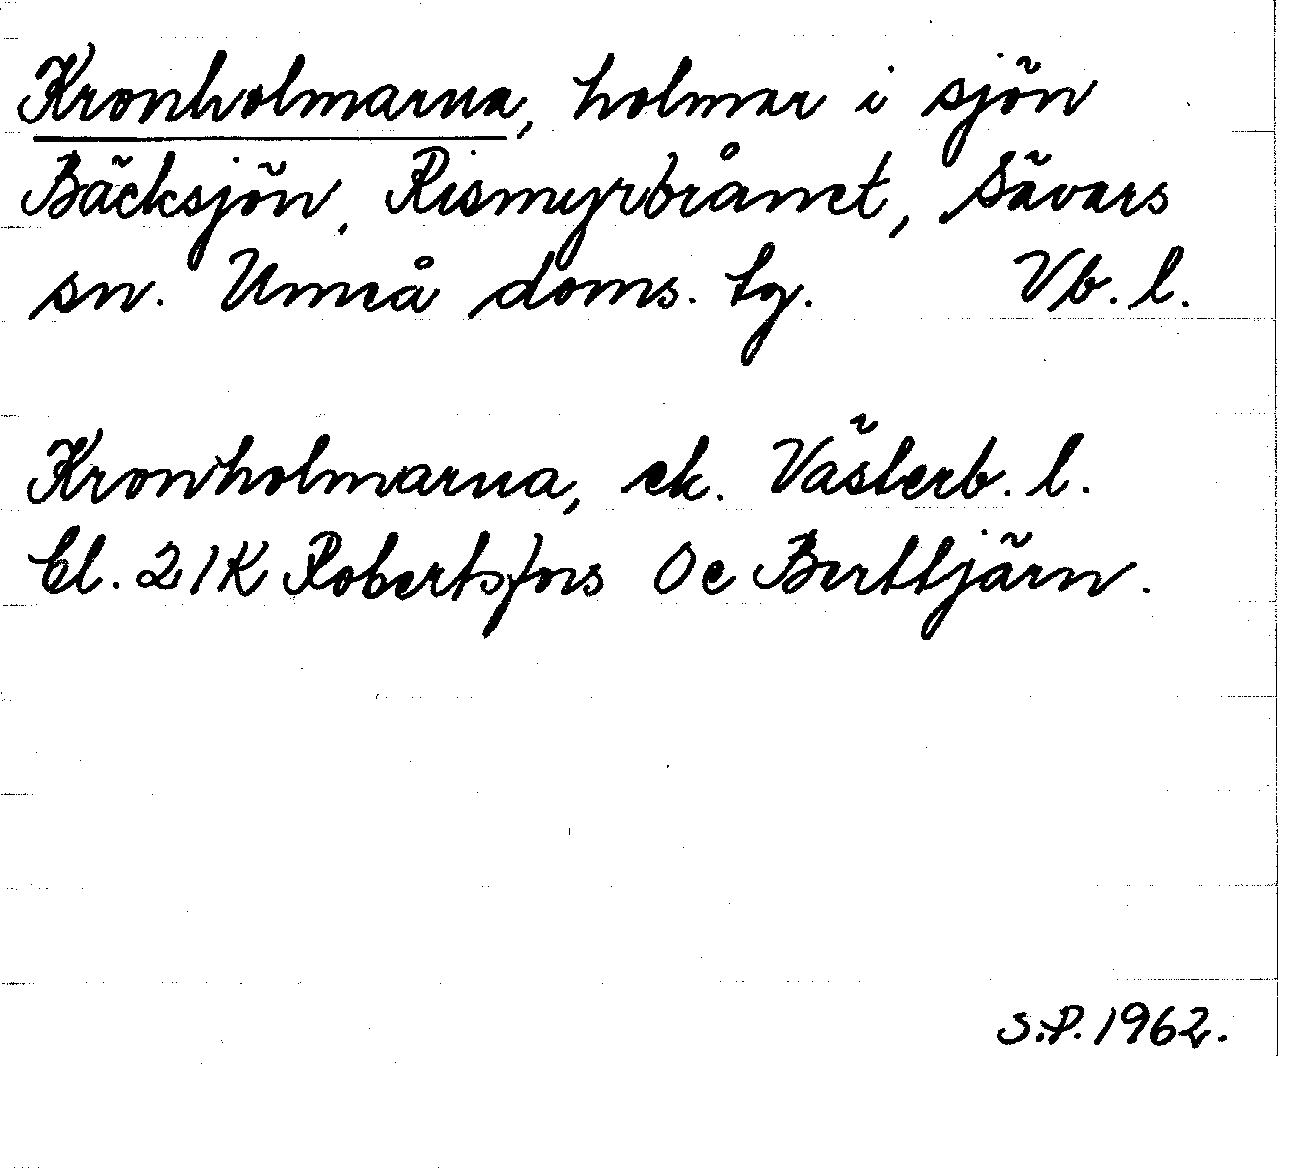 Kronholmarna, holmar i sjön
Bäcksjön, Rismyrbrånet, Sävars
sn. Umeå doms. tg. Vb. l.
Kronholmarna, ek. Västerb. l.
Bl. 21K Robertsfors Oc Burttjärn.
S.P. 1962.